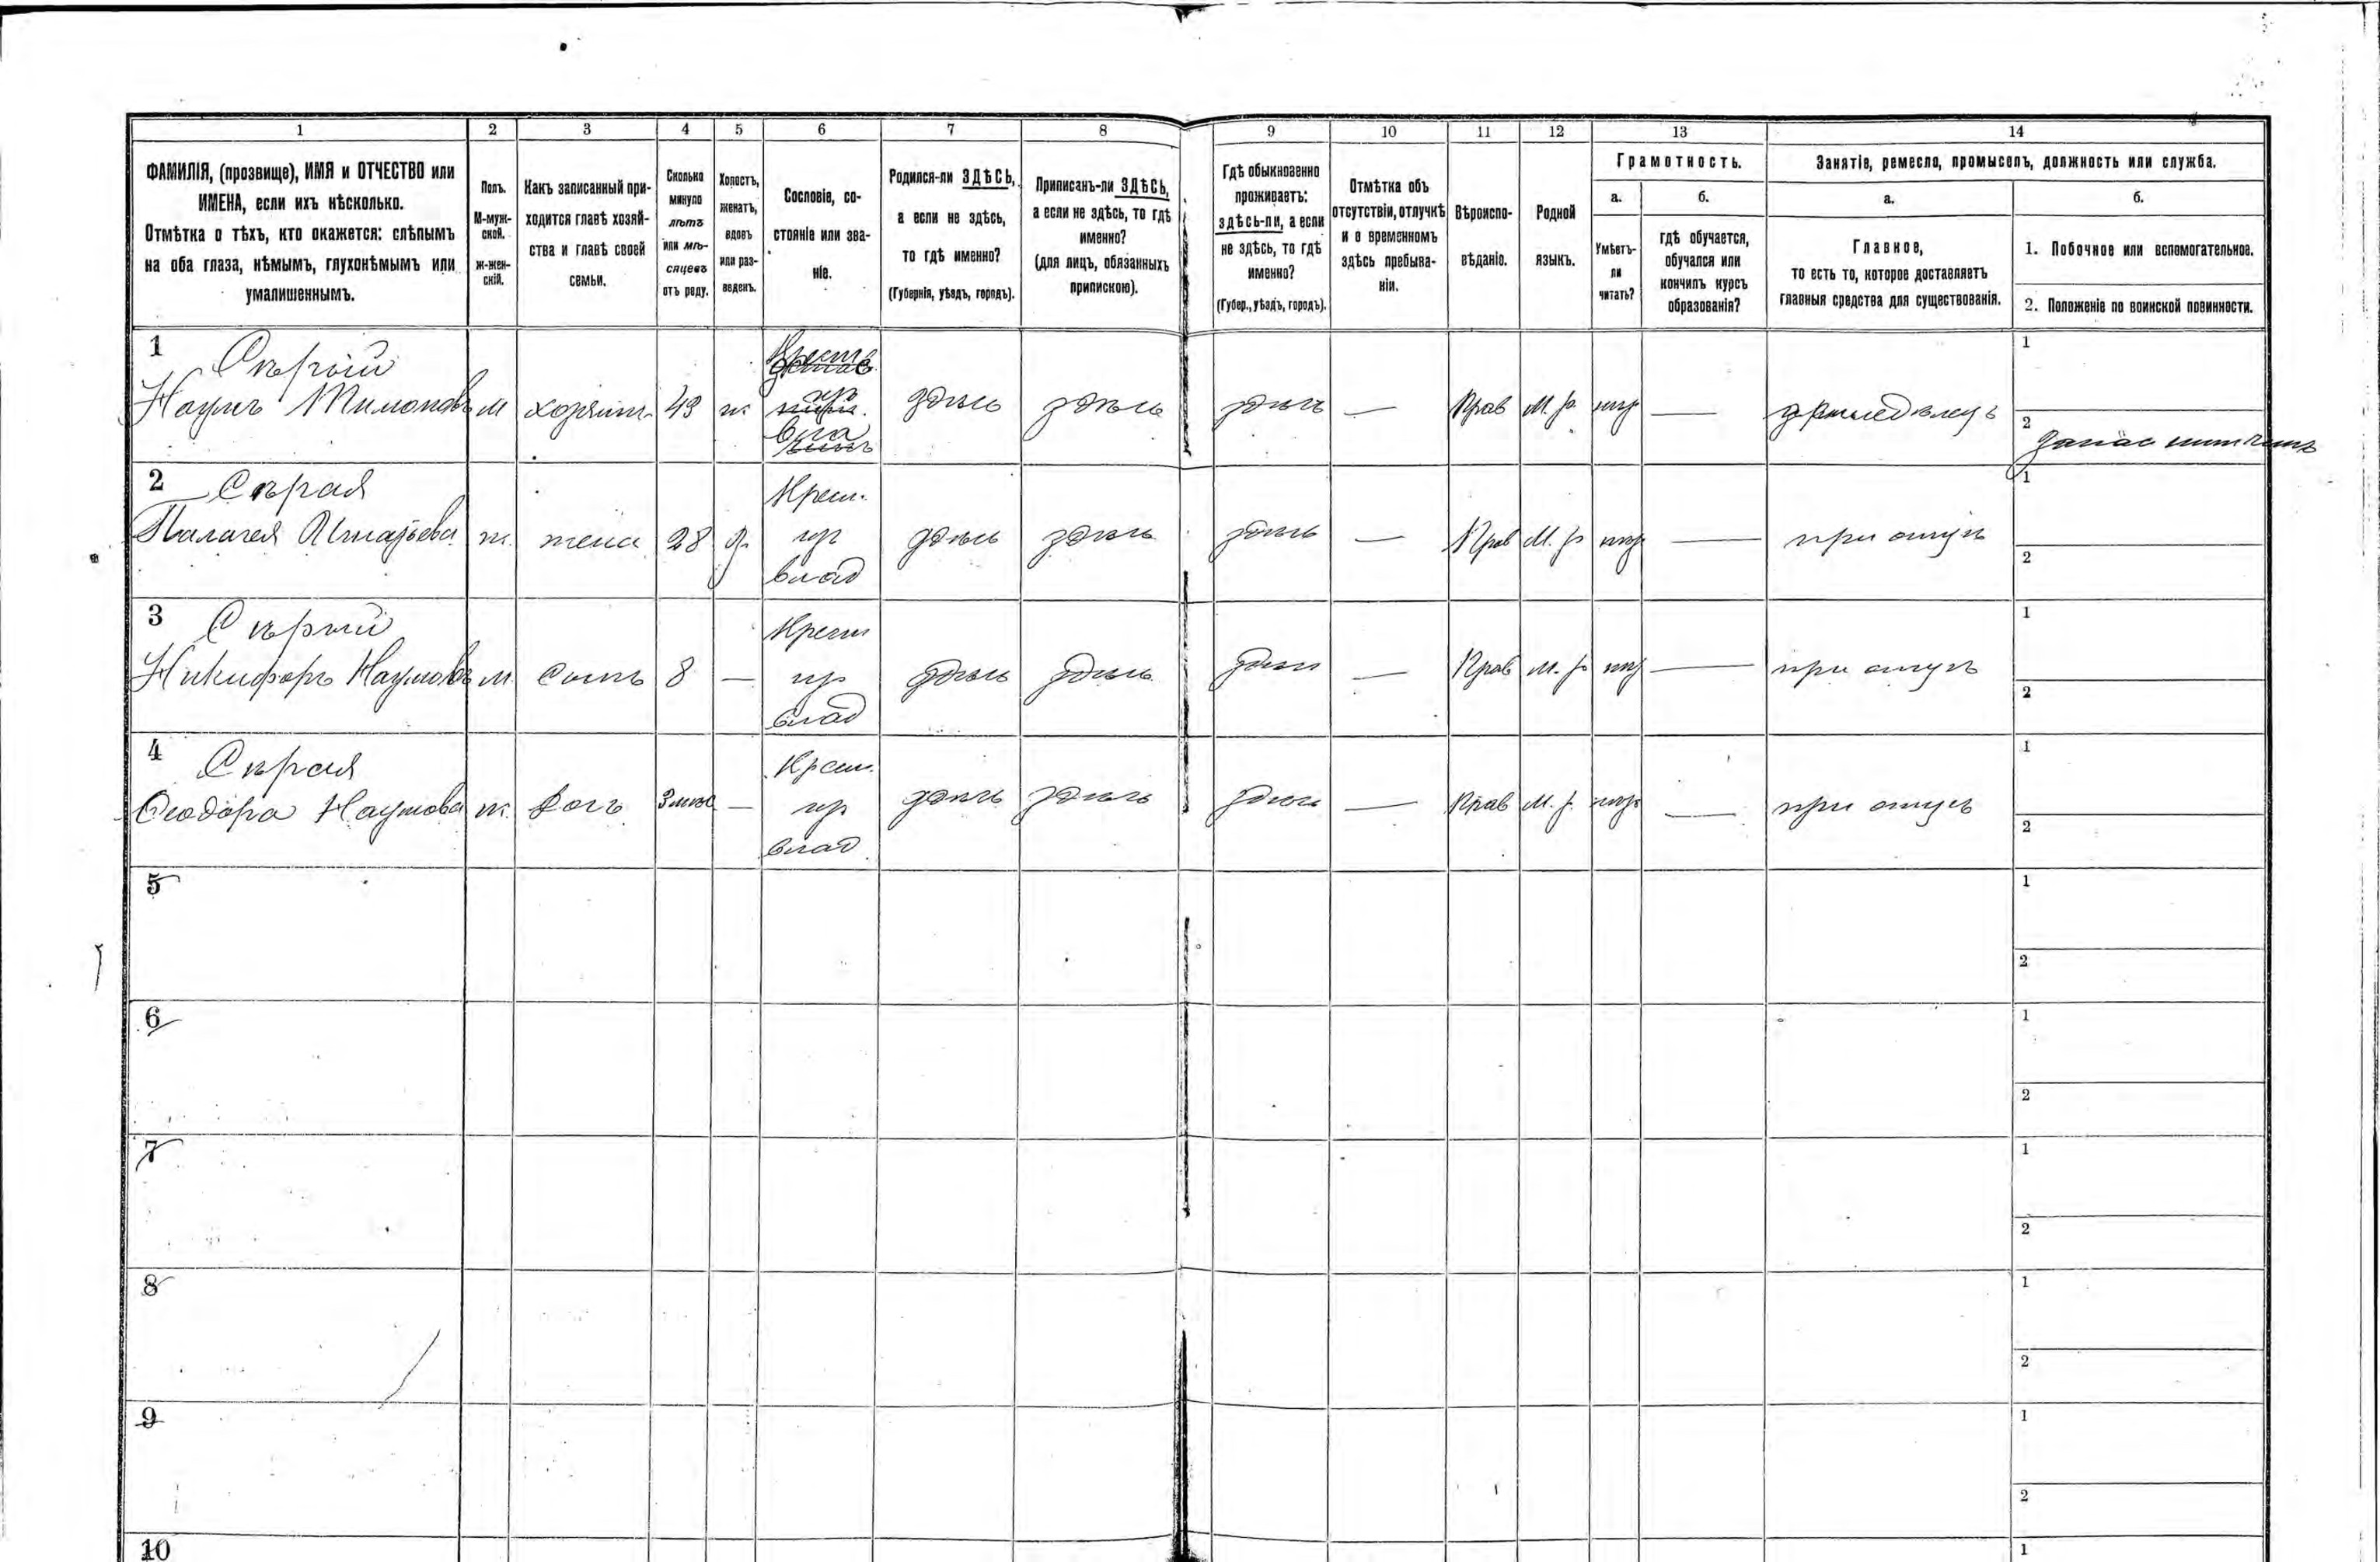 1 2 3 4 5 6 7 8 9 10 11 12 13 14
ФАМИЛІЯ, (прозвище), ИМЯ и ОТЧЕСТВО или
ИМЕНА, если ихъ нѣсколько.
Отмѣтка о тѣхъ, кто окажется: слѣпымъ
на оба глаза, нѣмымъ, глухонѣмымъ или
умалишеннымъ.
Полъ.
М-муж-
ской.
ж-жен-
скій.
Какъ записанный при-
ходится главѣ хозяй-
ства и главѣ своей
семьи.
Сколько
минуло
лѣтъ
или мѣ-
сяцевъ
отъ роду.
Холостъ,
женатъ,
вдовъ
или раз-
веденъ.
Сословіе, со-
стояніе или зва-
ніе.
Родился-ли ЗДѢСЬ,
а если не здѣсь,
то гдѣ именно?
(Губернія, уѣздъ, городъ).
Приписанъ-ли ЗДѢСЬ,
а если не здѣсь, то гдѣ
именно?
(для лицъ, обязанныхъ
припискою).
Гдѣ обыкновенно
проживаетъ:
здѣсь-ли, а если
не здѣсь, то гдѣ
именно?
(Губер., уѣздъ, городъ).
Отмѣтка объ
отсутствіи, отлучкѣ
и о временномъ
здѣсь пребыва-
ніи.
Вѣроиспо-
вѣданіе.
Родной
языкъ.
Грамотность.
а.
Умѣетъ-
ли
читать?
б.
гдѣ обучается,
обучался или
кончилъ курсъ
образованія?
Занятіе, ремесло, промыселъ, должность или служба.
а.
Главное,
то есть то, которое доставляетъ
главныя средства для существованія.
б.
1. Побочное или вспомогательное.
2. Положеніе по воинской повинности.
1 Сѣрый
Наумъ Тимоновъ м хозяинъ 43 ж Крест. здѣсь здѣсь здѣсь — Прав М. р. нѣт — земледѣлецъ
1
2
2 Сѣрая
Палагея Игнатьева ж. жена 28 з. Крест. пр влад здѣсь здѣсь здѣсь — Прав М. р нѣт — при отцѣ
1
2
3 Сѣрый
Никифоръ Наумовъ м сынъ 8 — Крест пр влад здѣсь здѣсь здѣсь — Прав М. р нѣт — при отцѣ
1
2
4 Сѣрая
Ѳеодора Наумова ж. дочь 3 мѣс — Крест. пр влад. здѣсь здѣсь здѣсь — Прав М. р. нѣт — при отцѣ
1
2
5
1
2
6
1
2
7
1
2
8
1
2
9
1
2
10
1